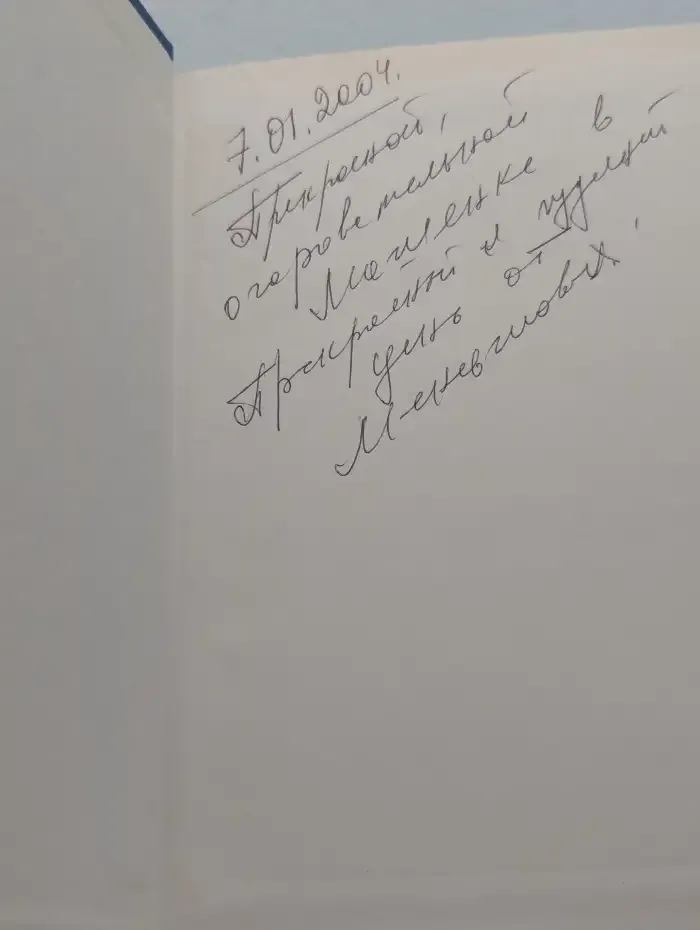 7.01.2004.
Прекрасной,
очаровательной
Машенке в
прекрасный и чудный
день от
Меньшовых.